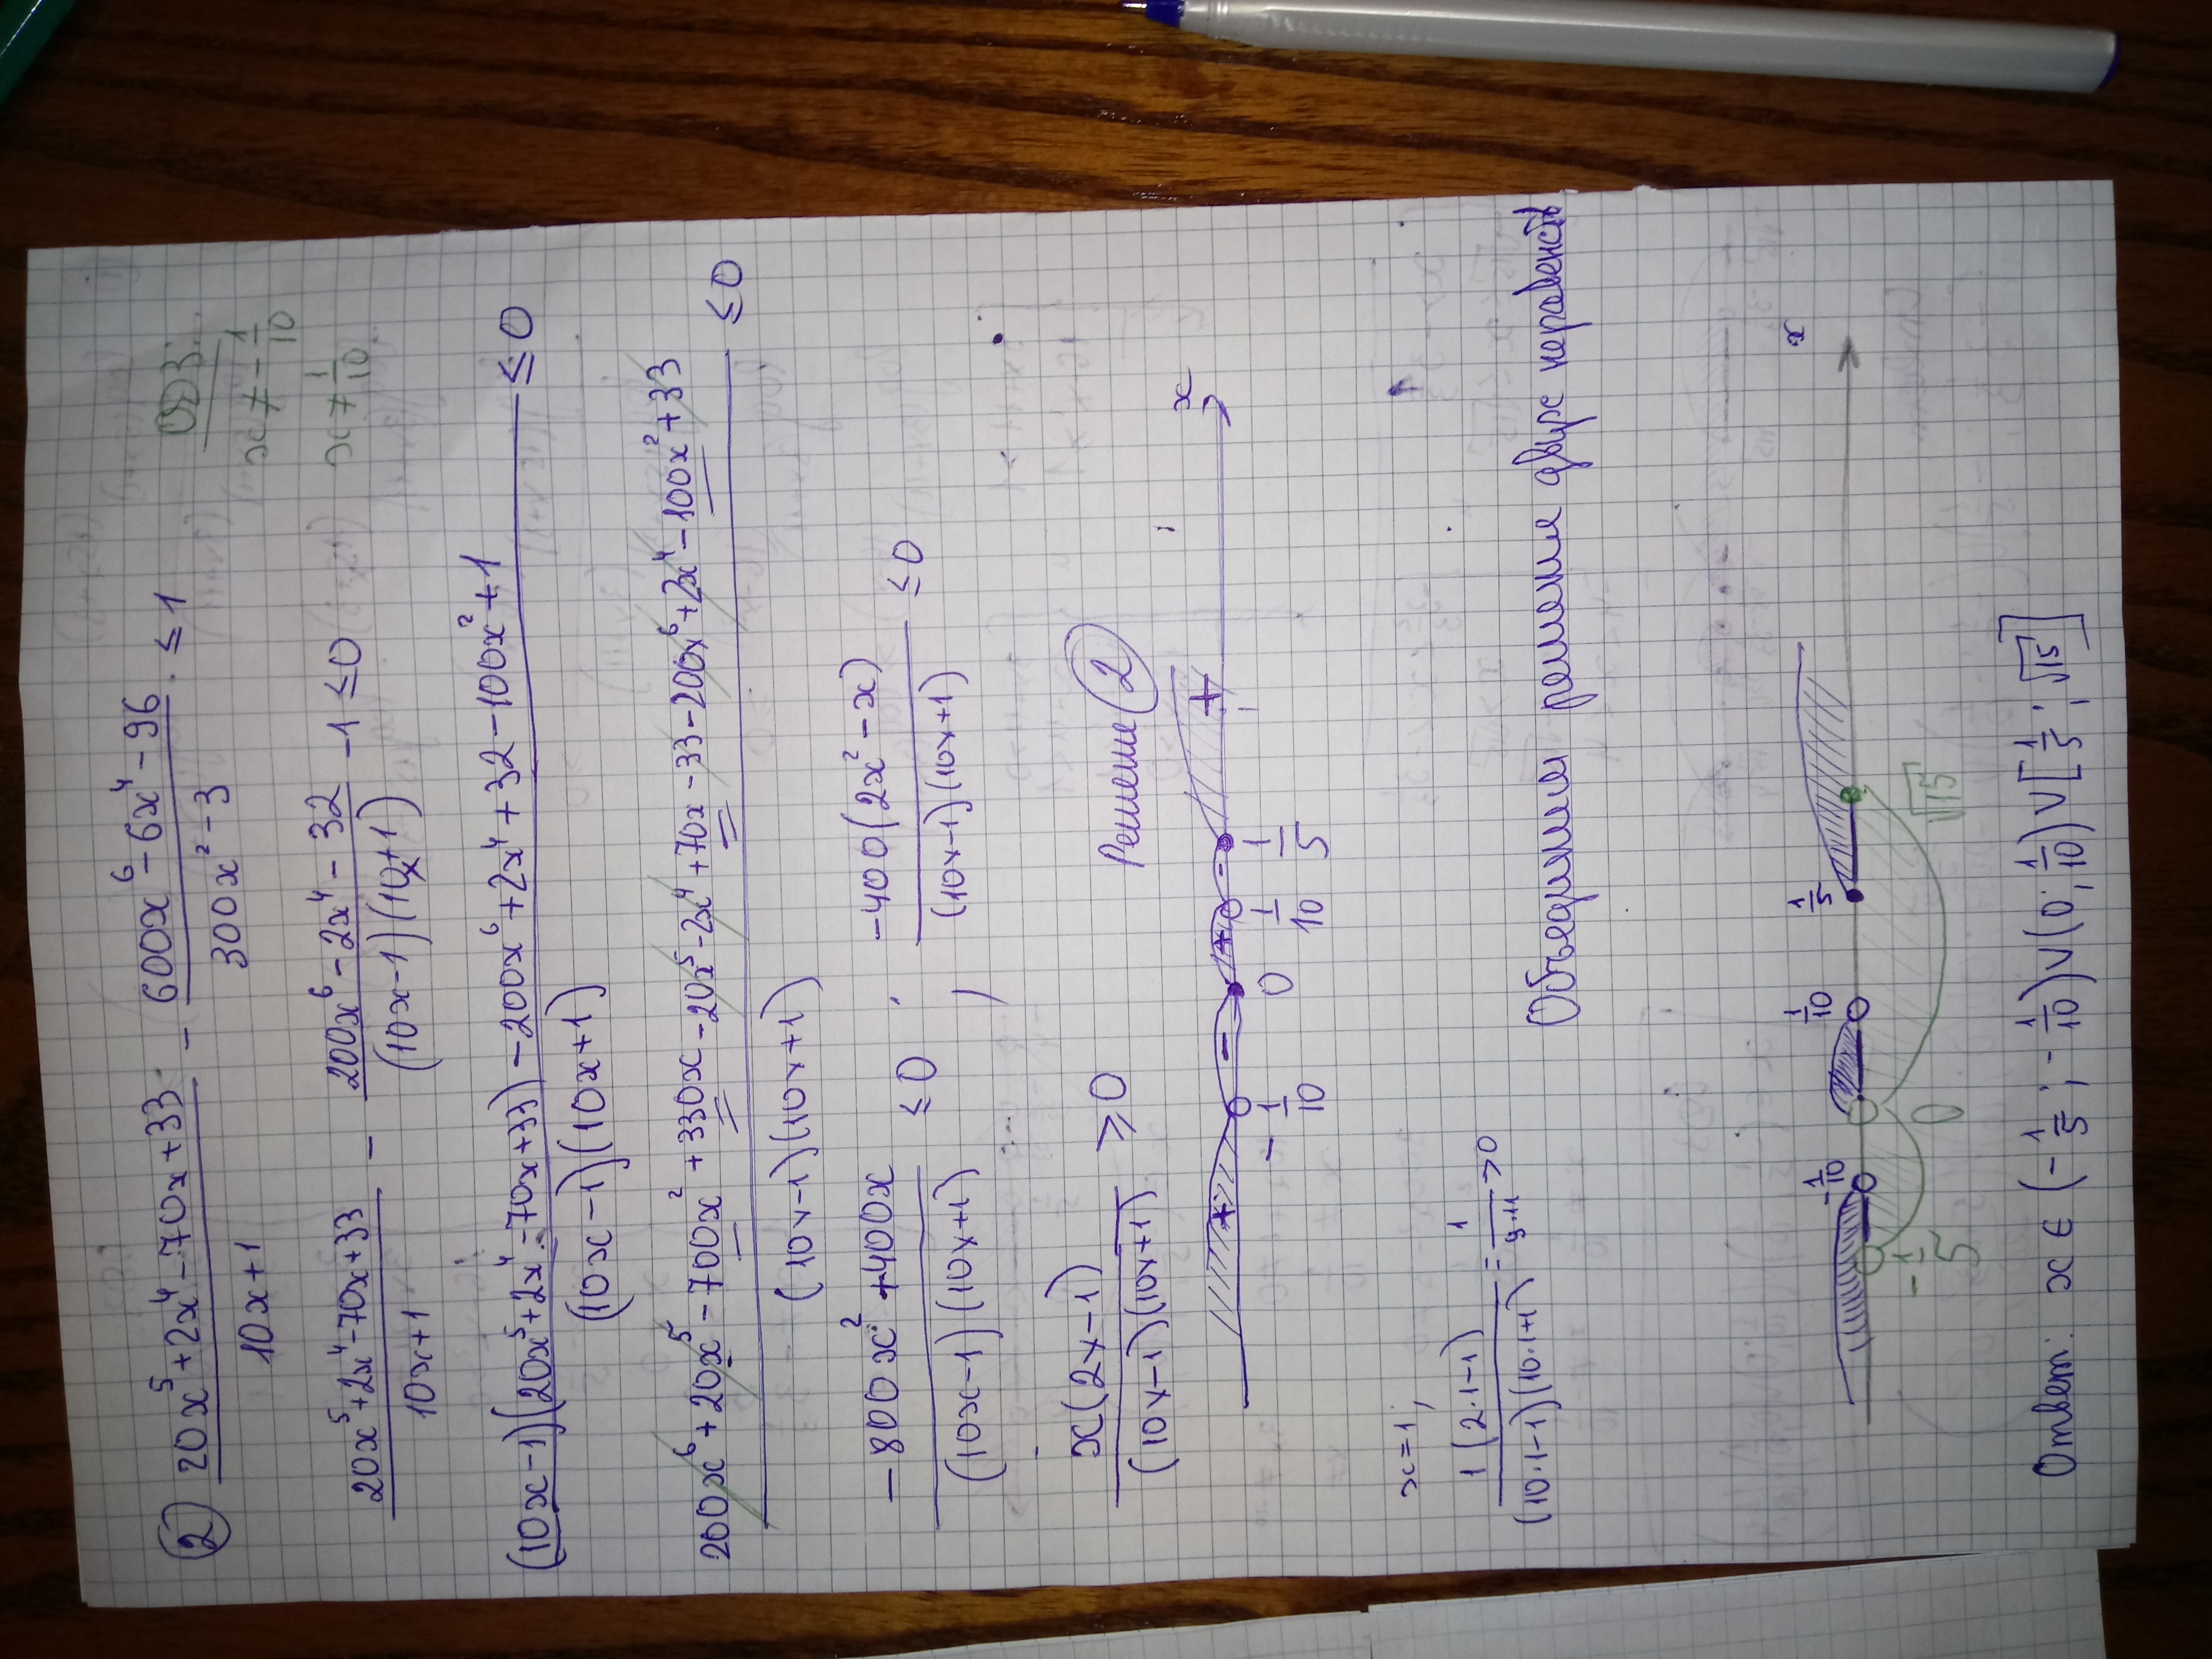 ② (20x⁵+2x⁴-70x+33)/(10x+1) - (600x⁶-6x⁴-96)/(300x²-3) ≤ 1
ОДЗ:
x≠-1/10
x≠1/10
(20x⁵+2x⁴-70x+33)/(10x+1) - (200x⁶-2x⁴-32)/((10x-1)(10x+1)) -1 ≤0
((10x-1)(20x⁵+2x⁴-70x+33)-200x⁶+2x⁴+32-100x²+1)/((10x-1)(10x+1)) ≤0
(200x⁶+20x⁵-700x²+330x-20x⁵-2x⁴+70x-33-200x⁶+2x⁴-100x²+33)/((10x-1)(10x+1)) ≤0
(-800x²+400x)/((10x-1)(10x+1)) ≤0 ; (-400(2x²-x))/((10x-1)(10x+1)) ≤0
(x(2x-1))/((10x-1)(10x+1)) ≥0
Решение ②
+ - + - + x
-1/10 0 1/10 1/5
x=1;
(1(2·1-1))/((10·1-1)(10·1+1)) = 1/(9·11) >0
Объединим решение двух неравенств
-1/10 1/10 1/5 x
-1/5 0 √15
Ответ: x∈(-1/5; -1/10)∨(0; 1/10)∨[1/5; √15]